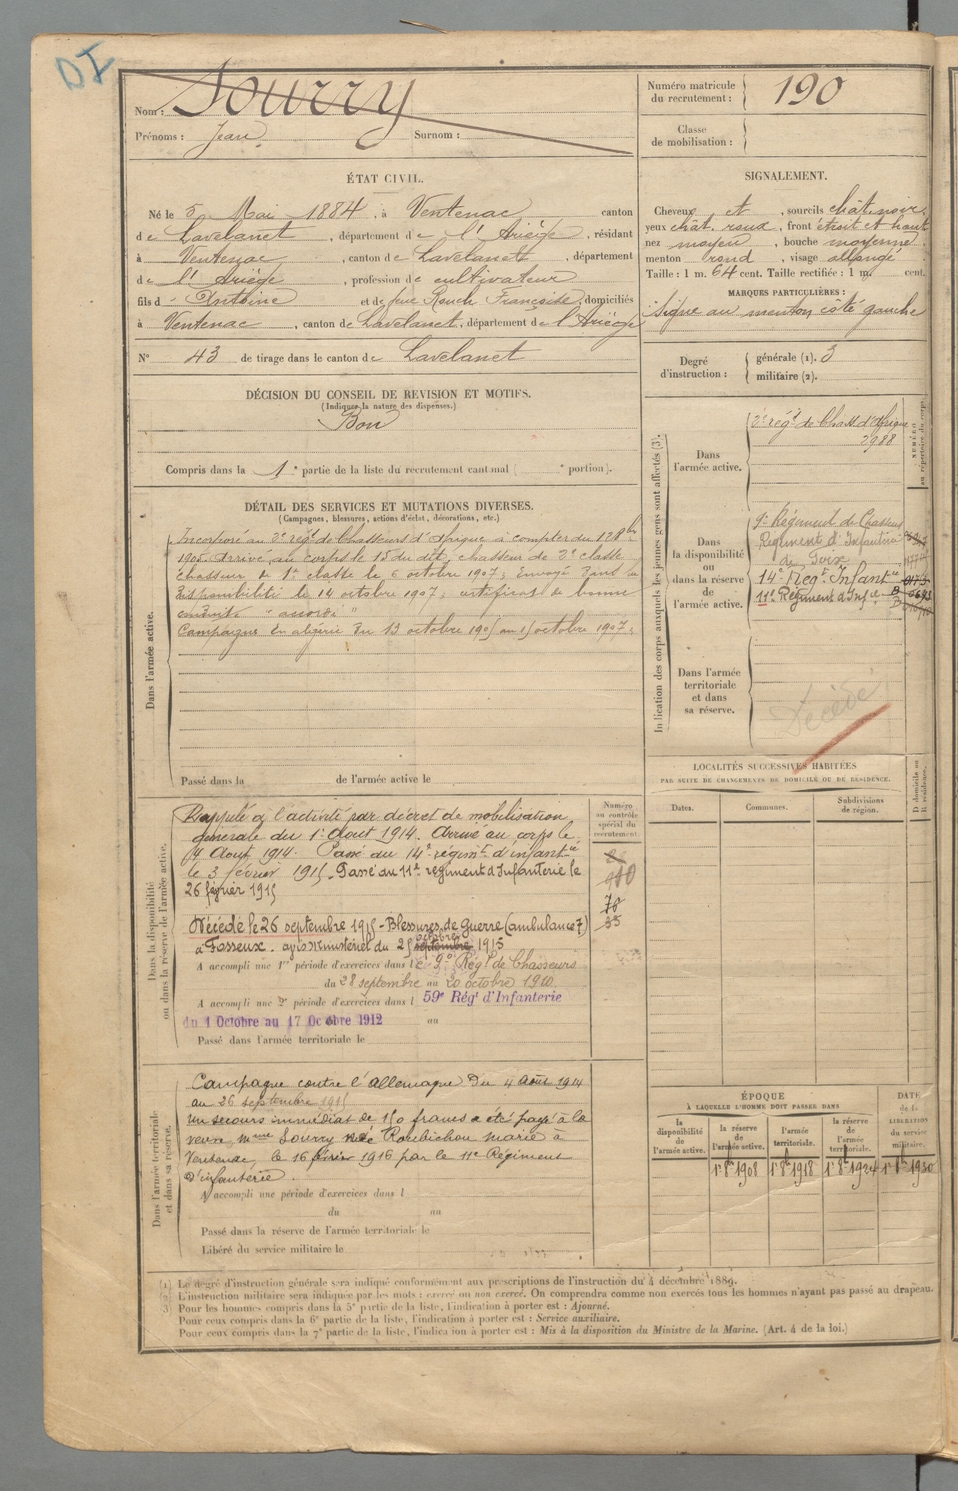 DI
Nom : Sourry
Prénoms : Jean Surnom :
Numéro matricule du recrutement : 190
Classe de mobilisation :
ÉTAT CIVIL.
Né le 5 Mai 1884, à Ventenac canton
de Lavelanet, département de l'Ariège, résidant
à Ventenac, canton de Lavelanet, département
de l'Ariège, profession de cultivateur
fils d'Antoine et de feue Rouch Françoise, domiciliés
à Ventenac, canton de Lavelanet, département de l'Ariège
N° 43 de tirage dans le canton de Lavelanet
SIGNALEMENT.
Cheveux et , sourcils chât. noir,
yeux chât. roux, front étroit et haut
nez moyen, bouche moyenne
menton rond, visage allongé
Taille : 1 m. 64 cent. Taille rectifiée : 1 m. cent.
MARQUES PARTICULIÈRES :
Signe au menton côté gauche
Degré d'instruction : générale (1). 3
militaire (2).
DÉCISION DU CONSEIL DE REVISION ET MOTIFS.
(Indiquer la nature des dispenses.)
Bon
Compris dans la 1e partie de la liste du recrutement cantonal ( e portion).
DÉTAIL DES SERVICES ET MUTATIONS DIVERSES.
(Campagnes, blessures, actions d'éclat, décorations, etc.)
Dans l'armée active.
Incorporé au 2e régt de Chasseurs d'Afrique à compter du 12 8bre
1905. Arrivé au corps le 15 du dit, chasseur de 2e classe
Chasseur de 1e classe le 6 octobre 1907; Envoyé dans la
disponibilité le 14 octobre 1907; certificat de bonne
conduite "accordé"
Campagnes En algérie du 13 octobre 1905 au 15 octobre 1907;
Passé dans la de l'armée active le
Indication des corps auxquels les jeunes gens sont affectés (3).
NUMÉRO au répertoire du corps.
Dans l'armée active.
2e régt de Chass. d'Afrique
2988
Dans la disponibilité ou dans la réserve de l'armée active.
9e Régiment de Chasseurs
Régiment d'Infanterie
de Foix
14e Régt Infantie
11e Régiment d'Infie
Dans l'armée territoriale et dans sa réserve.
Décédé
LOCALITÉS SUCCESSIVES HABITÉES
PAR SUITE DE CHANGEMENTS DE DOMICILE OU DE RÉSIDENCE.
Dates. Communes. Subdivisions de région. D domicile ou R résidence.
Dans la disponibilité ou dans la réserve de l'armée active.
Numéro au contrôle spécial du recrutement.
Rappelé à l'activité par décret de mobilisation
générale du 1er Aout 1914. Arrivé au corps le
4 Aout 1914. Passé au 14e régimt d'infantie
le 3 février 1915. Passé au 11e régiment d'Infanterie le
26 février 1915
70
35
Décédé le 26 septembre 1915 - Blessures de Guerre (ambulance 7)
à Fosseux. avis ministériel du 25 septembre octobre 1915
A accompli une 1re période d'exercices dans le 9e Régt de Chasseurs
du 28 septembre au 20 octobre 1910
A accompli une 2e période d'exercices dans l 59e Régt d'Infanterie
du 1 Octobre au 17 Octobre 1912 au
Passé dans l'armée territoriale le
Dans l'armée territoriale et dans sa réserve.
Campagne contre l'Allemagne Du 4 Août 1914
au 26 septembre 1915
Un secours immédiat de 150 francs a été payé à la
veuve, Mme Sourry née Roubichou Marie à
Ventenac, le 16 février 1916 par le 11e Régiment
d'infanterie.
A accompli une période d'exercices dans l
du au
Passé dans la réserve de l'armée territoriale le
Libéré du service militaire le
ÉPOQUE
À LAQUELLE L'HOMME DOIT PASSER DANS
DATE de la LIBÉRATION du service militaire.
la disponibilité de l'armée active. la réserve de l'armée active. l'armée territoriale. la réserve de l'armée territoriale.
1er 8bre 1908 1er 8bre 1918 1er 8bre 1924 1er 8bre 1930
(1) Le degré d'instruction générale sera indiqué conformément aux prescriptions de l'instruction du 4 décembre 1889.
(2) L'instruction militaire sera indiquée par les mots : exercé ou non exercé. On comprendra comme non exercés tous les hommes n'ayant pas passé au drapeau.
(3) Pour les hommes compris dans la 5e partie de la liste, l'indication à porter est : Ajourné.
Pour ceux compris dans la 6e partie de la liste, l'indication à porter est : Service auxiliaire.
Pour ceux compris dans la 7e partie de la liste, l'indication à porter est : Mis à la disposition du Ministre de la Marine. (Art. 4 de la loi.)